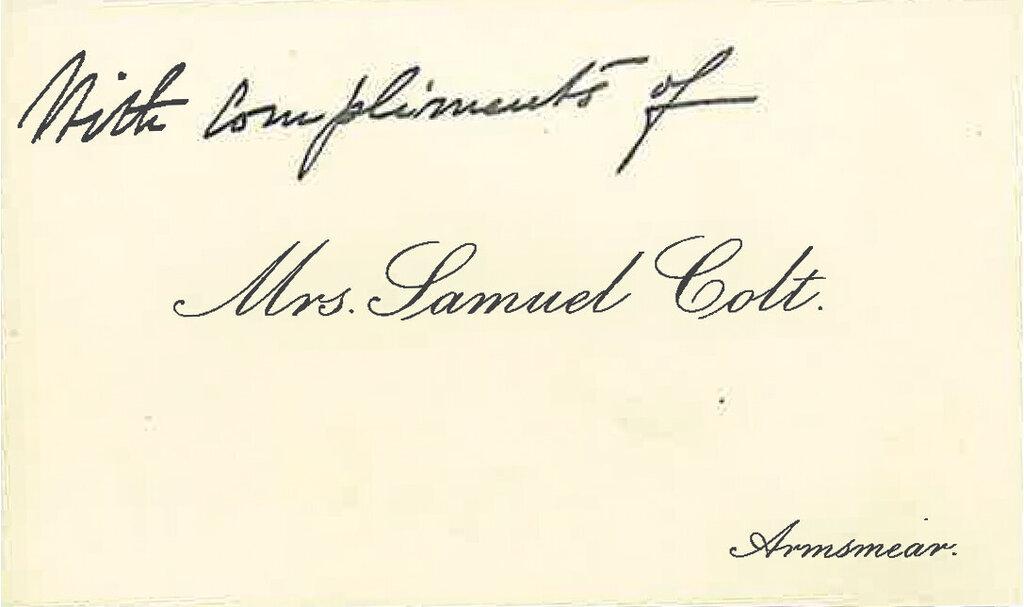 With compliments of
Mrs. Samuel Colt.
Armsmear.